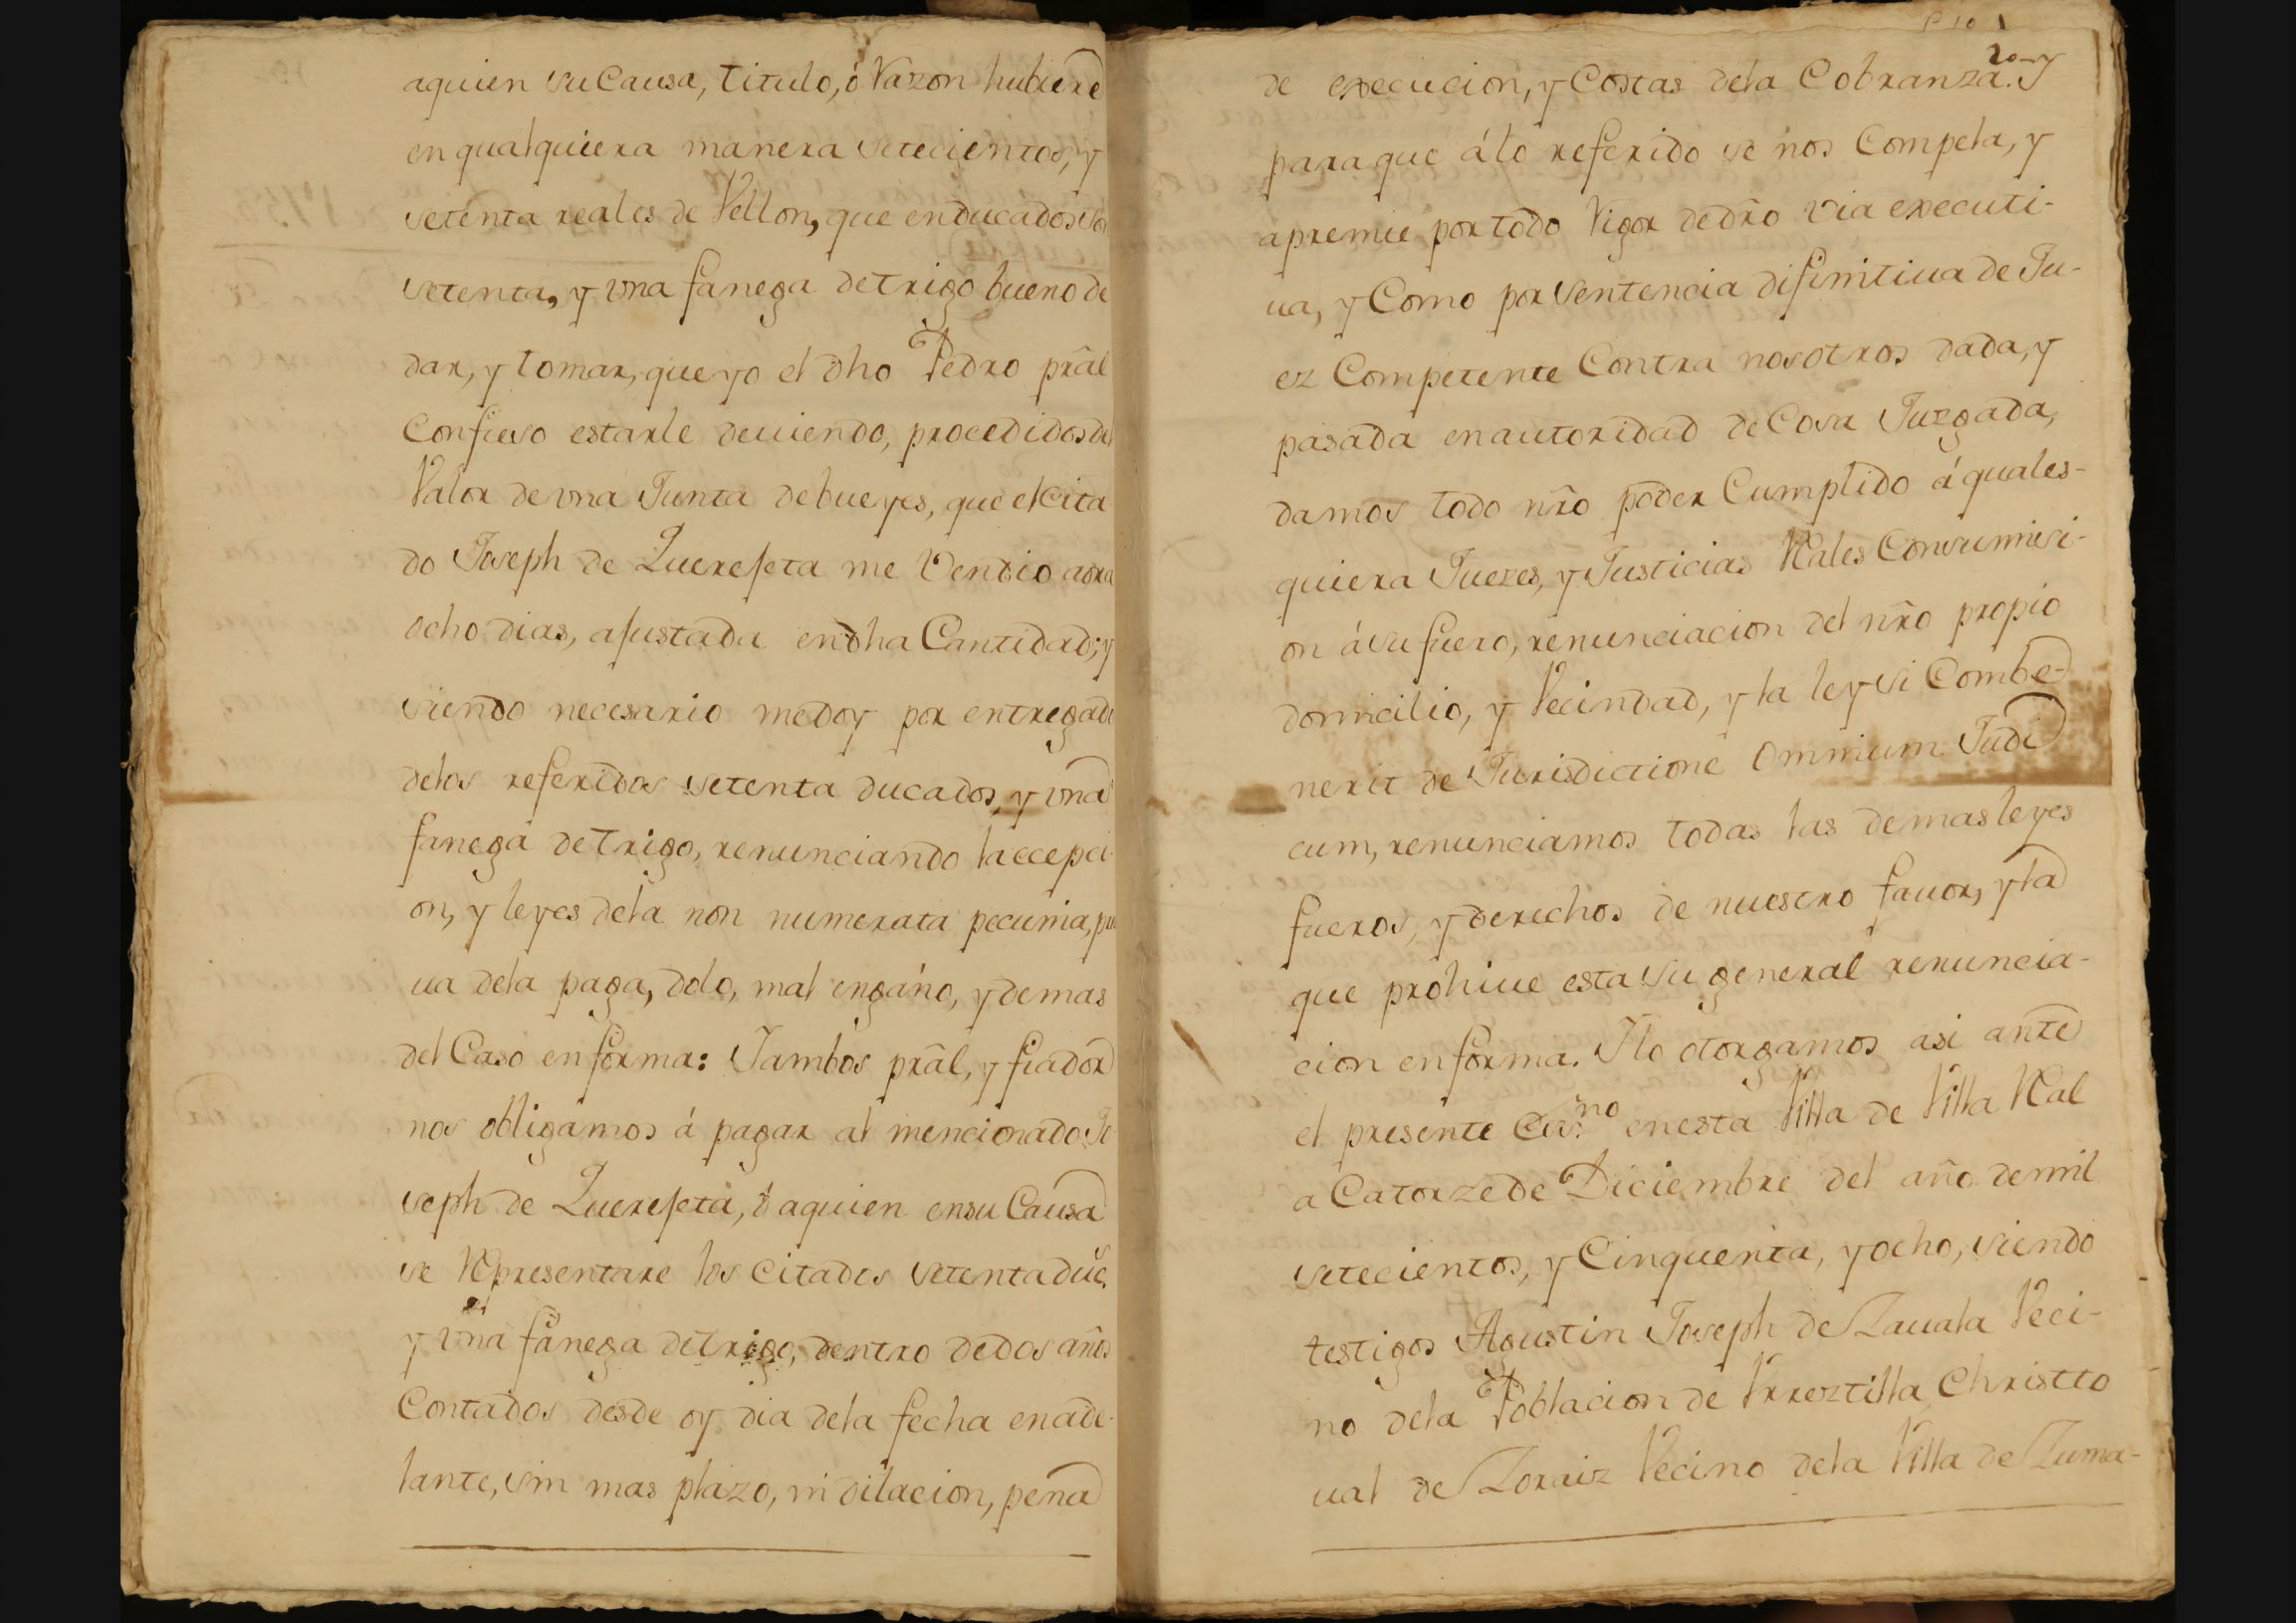 aquien su Causa, titulo, ó Razon hubiere
en qualquiera manera setecientos, y
setenta reales de Vellon, que en ducados son
setenta, y vna fanega de trigo bueno de
dar, y tomar, que yo el dho Pedro prãl
Confieso estarle deuiendo, procedidos del
Valor de vna Junta de bueyes, que el Cita
do Joseph de Querejeta me Vendio aora
ocho dias, ajustada en dha Cantidad; y
siendo necesario me doy por entregado
delos referidos setenta ducados, y vna
fanega de trigo, renunciando la ecepci-
on, y leyes dela non numerata pecunia, pru
ua dela paga, dolo, mal engaño, y demas
del Caso en forma: Jambos prãl, y fiador
nos obligamos á pagar al mencionado Jo
seph de Querejeta, ó aquien en su Causa
se Representare los Citados setenta duc.s
y vna fanega de trigo, dentro de dos años
Contados desde oy dia dela fecha en ade-
lante, sin mas plazo, ni dilacion, pena
20
de execucion, y Costas dela Cobranza. Y
para que álo referido se nos Compela, y
apremie por todo Rigor de dr̃o via executi-
ua, y Como por Sentencia difinitiua de Ju-
ez Competente Contra nosotros dada, y
pasada en autoridad de Cosa Juzgada,
damos todo nr̃o poder Cumplido á quales-
quiera Juezes, y Justicias Rales Con sumisi-
on á su fuero, renunciacion del nr̃o propio
domicilio, y Vecindad, y la ley si Combe-
nerit de Jurisdictione omnium Judi
cum, renunciamos todas las demas leyes
fueros, y derechos de nuestro fauor, y la
que prohiue esta su general renuncia-
cion en forma. Ylo otorgamos asi ante
el presente Ess.no en esta Villa de Villa Ral
a Catorze de Diciembre del año de mil
setecientos, y Cinquenta, y ocho, siendo
testigos Agustin Joseph de Zauala Veci-
no dela Poblacion de Vrreztilla, Christto
ual de Zoraiz Vecino dela Villa de Zuma-